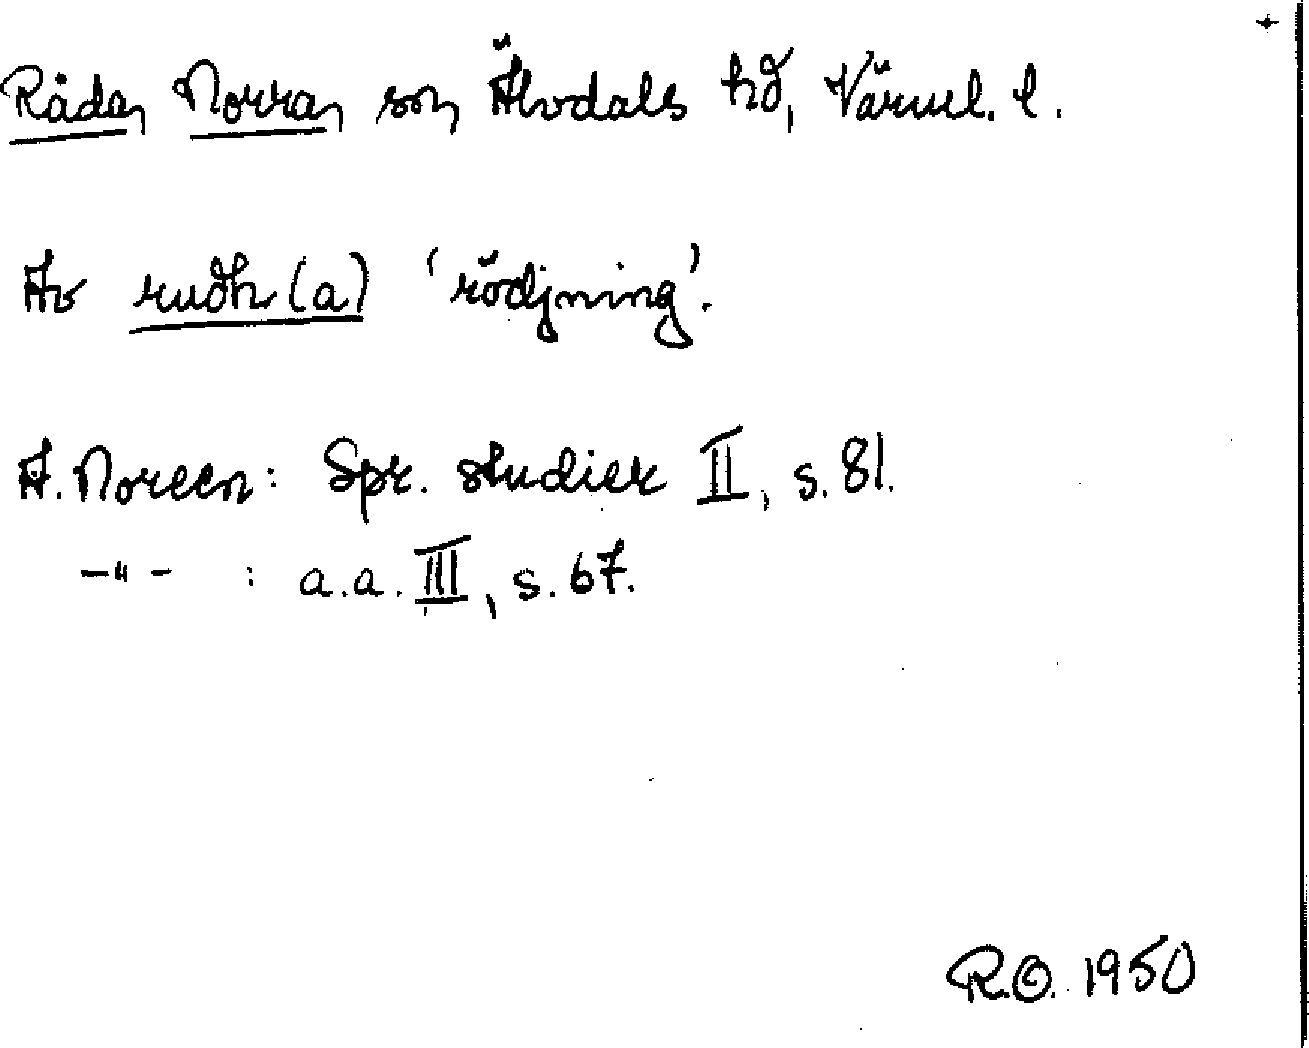 Råda, Norra, sn, Älvdals hd, Värml. l.
Av rudh(a) 'rödjning'.
A. Noreen: Spr. studier II, s. 81.
-"- : a.a. III, s. 67.
R.O. 1950